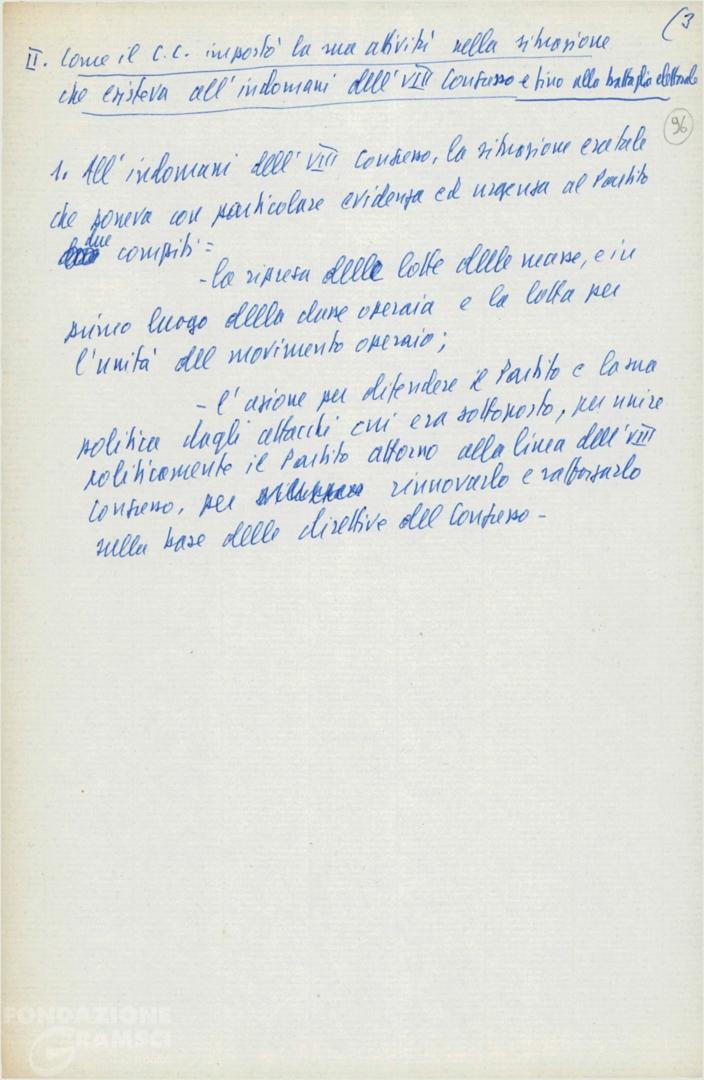 (3
II. Come il C.C. impostò la sua attività nella situazione
che esisteva all'indomani dell'VIII Congresso e fino alla battaglia elettorale
96
1. All'indomani dell'VIII Congresso, la situazione era tale
che poneva con particolare evidenza ed urgenza al Partito
due compiti=
- la ripresa delle lotte delle masse, e in
primo luogo della classe operaia e la lotta per
l'unità del movimento operaio;
- l'azione per difendere il Partito e la sua
politica dagli attacchi cui era sottoposto, per unire
politicamente il Partito attorno alla linea dell'VIII
Congresso, per rinnovarlo e rafforzarlo
sulla base delle direttive del Congresso -
FONDAZIONE
GRAMSCI